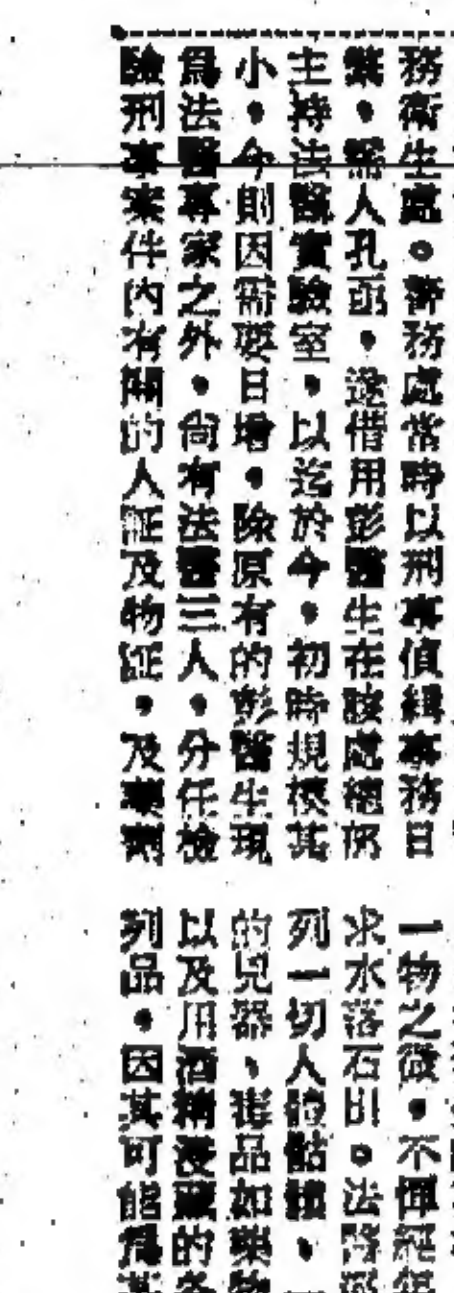 務衛生處。警務處當時以刑事偵緝事務日
繁,需人孔亟,遂借用彭醫生在該處總部
主持法醫實驗室,以迄於今,初時規模甚
小,今則因需要日增,除原有的彭醫生現
為法醫專家之外,尚有法醫三人,分任檢
驗刑事案件內有關的人証及物証,及藥劑
一物之微,不憚經年
求水落石出。法醫
列一切人體骷髏、
的兇器、毒品如藥物
以及用酒精浸藏的各
列品,因其可能為